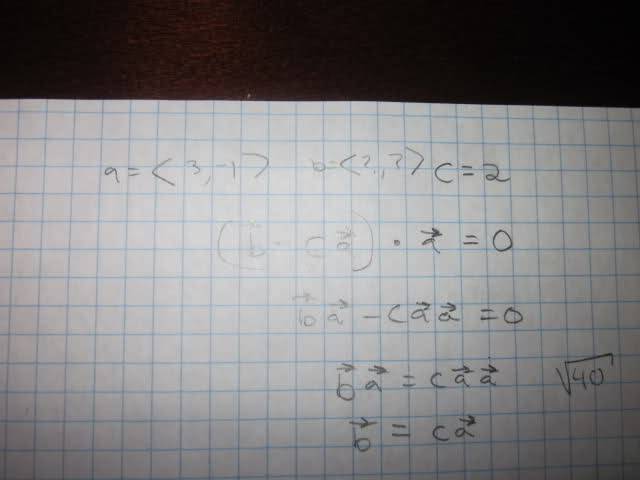 a = <3, -1> b = <2, 3> c = 2
(b⃗ - c a⃗) · a⃗ = 0
b⃗ a⃗ - c a⃗ a⃗ = 0
b⃗ a⃗ = c a⃗ a⃗ √40
b⃗ = c a⃗